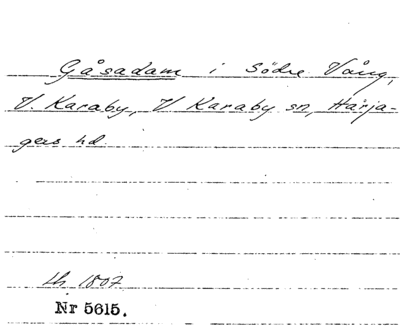 Gåsadam i Södre Vång,
V. Karaby, V Karaby sn, Härja-
gers hd.
lh 1807
Nr 5615.